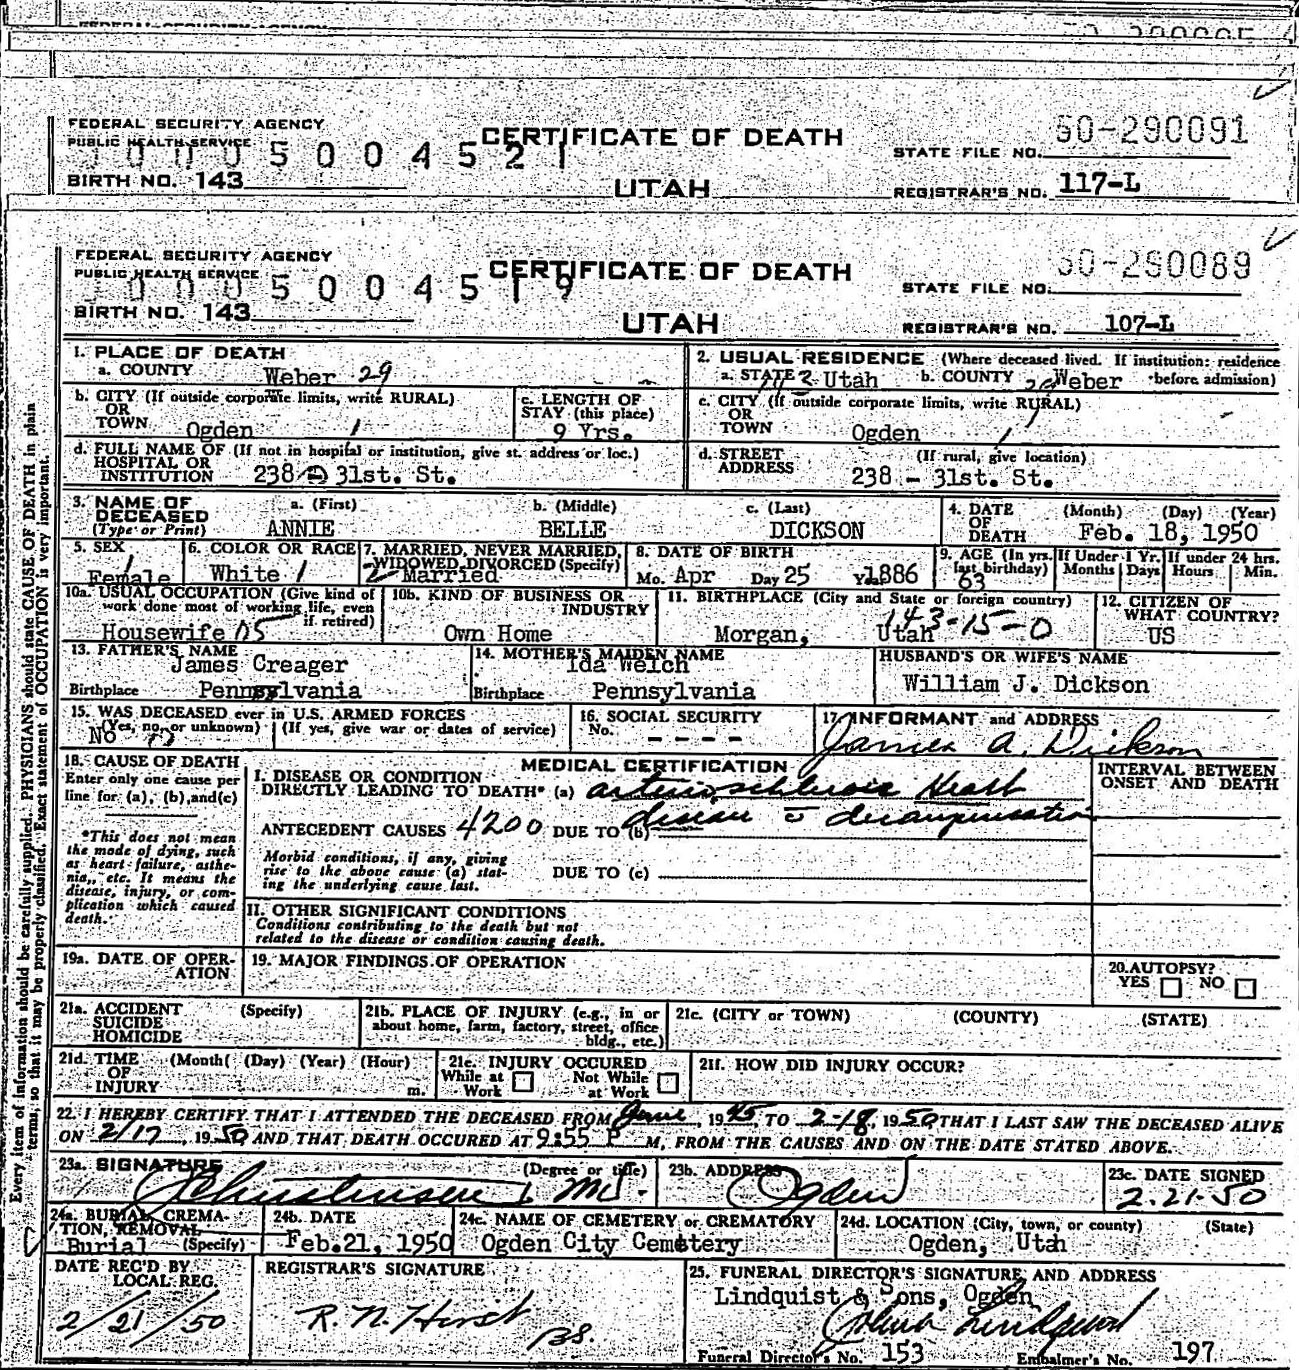 FEDERAL SECURITY AGENCY
FEDERAL SECURITY AGENCY
PUBLIC HEALTH SERVICE
CERTIFICATE OF DEATH
50-290091
STATE FILE NO.
5 0 0 4 5 2 1
BIRTH NO. 143
UTAH
REGISTRAR'S NO. 117-L
FEDERAL SECURITY AGENCY
PUBLIC HEALTH SERVICE
CERTIFICATE OF DEATH
50-290089
STATE FILE NO.
5 0 0 4 5 1 9
BIRTH NO. 143
UTAH
REGISTRAR'S NO. 107-L
Every item of information should be carefully supplied. PHYSICIANS should state CAUSE OF DEATH in plain
terms, so that it may be properly classified. Exact statement of OCCUPATION is very important.
1. PLACE OF DEATH
a. COUNTY Weber 29
2. USUAL RESIDENCE (Where deceased lived. If institution: residence
a. STATE Utah b. COUNTY Weber before admission)
b. CITY (If outside corporate limits, write RURAL)
OR
TOWN Ogden 1
c. LENGTH OF
STAY (this place)
9 Yrs.
c. CITY (If outside corporate limits, write RURAL)
OR
TOWN Ogden 1
d. FULL NAME OF (If not in hospital or institution, give st. address or loc.)
HOSPITAL OR
INSTITUTION 238 - 31st. St.
d. STREET (If rural, give location)
ADDRESS 238 - 31st. St.
3. NAME OF DECEASED
(Type or Print)
a. (First) b. (Middle) c. (Last)
ANNIE BELLE DICKSON
4. DATE OF DEATH
(Month) (Day) (Year)
Feb. 18, 1950
5. SEX
Female 1
6. COLOR OR RACE
White 1
7. MARRIED, NEVER MARRIED,
WIDOWED, DIVORCED (Specify)
2 Married
8. DATE OF BIRTH
Mo. Apr Day 25 Year 1886
9. AGE (In yrs. last birthday)
63
If Under 1 Yr.
Months Days
If under 24 hrs.
Hours Min.
10a. USUAL OCCUPATION (Give kind of
work done most of working life, even
if retired)
Housewife
10b. KIND OF BUSINESS OR
INDUSTRY
Own Home
11. BIRTHPLACE (City and State or foreign country)
Morgan, Utah 143-15-0
12. CITIZEN OF
WHAT COUNTRY?
US
13. FATHER'S NAME
James Creager
Birthplace Pennsylvania
14. MOTHER'S MAIDEN NAME
Ida Welch
Birthplace Pennsylvania
HUSBAND'S OR WIFE'S NAME
William J. Dickson
15. WAS DECEASED ever in U.S. ARMED FORCES
(Yes, no, or unknown) (If yes, give war or dates of service)
No
16. SOCIAL SECURITY
No. - - - -
17. INFORMANT and ADDRESS
James A. Dickson
18. CAUSE OF DEATH
Enter only one cause per
line for (a), (b), and (c)
*This does not mean
the mode of dying, such
as heart failure, asthe-
nia, etc. It means the
disease, injury, or com-
plication which caused
death.
MEDICAL CERTIFICATION
I. DISEASE OR CONDITION
DIRECTLY LEADING TO DEATH* (a) arteriosclerosis Heart
disease c̄ decompensation
ANTECEDENT CAUSES 4200 DUE TO (b)
Morbid conditions, if any, giving
rise to the above cause (a) stat-
ing the underlying cause last.
DUE TO (c)
INTERVAL BETWEEN
ONSET AND DEATH
II. OTHER SIGNIFICANT CONDITIONS
Conditions contributing to the death but not
related to the disease or condition causing death.
19a. DATE OF OPER-
ATION
19. MAJOR FINDINGS OF OPERATION
20. AUTOPSY?
YES NO
21a. ACCIDENT (Specify)
SUICIDE
HOMICIDE
21b. PLACE OF INJURY (e.g., in or
about home, farm, factory, street, office
bldg., etc.)
21c. (CITY or TOWN) (COUNTY) (STATE)
21d. TIME (Month) (Day) (Year) (Hour)
OF
INJURY m.
21e. INJURY OCCURED
While at Work Not While at Work
21f. HOW DID INJURY OCCUR?
22. I HEREBY CERTIFY THAT I ATTENDED THE DECEASED FROM June, 1945, TO 2-18, 1950 THAT I LAST SAW THE DECEASED ALIVE
ON 2/17, 1950 AND THAT DEATH OCCURED AT 9:55 P M, FROM THE CAUSES AND ON THE DATE STATED ABOVE.
23a. SIGNATURE (Degree or title)
Christensen MD.
23b. ADDRESS
Ogden
23c. DATE SIGNED
2.21.50
24a. BURIAL, CREMA-
TION, REMOVAL
Burial (Specify)
24b. DATE
Feb. 21, 1950
24c. NAME OF CEMETERY or CREMATORY
Ogden City Cemetery
24d. LOCATION (City, town, or county) (State)
Ogden, Utah
DATE REC'D BY
LOCAL REG.
2/21/50
REGISTRAR'S SIGNATURE
R. N. Hirst
BS.
25. FUNERAL DIRECTOR'S SIGNATURE AND ADDRESS
Lindquist & Sons, Ogden
John Lindquist
Funeral Director's No. 153 Embalmer's No. 197